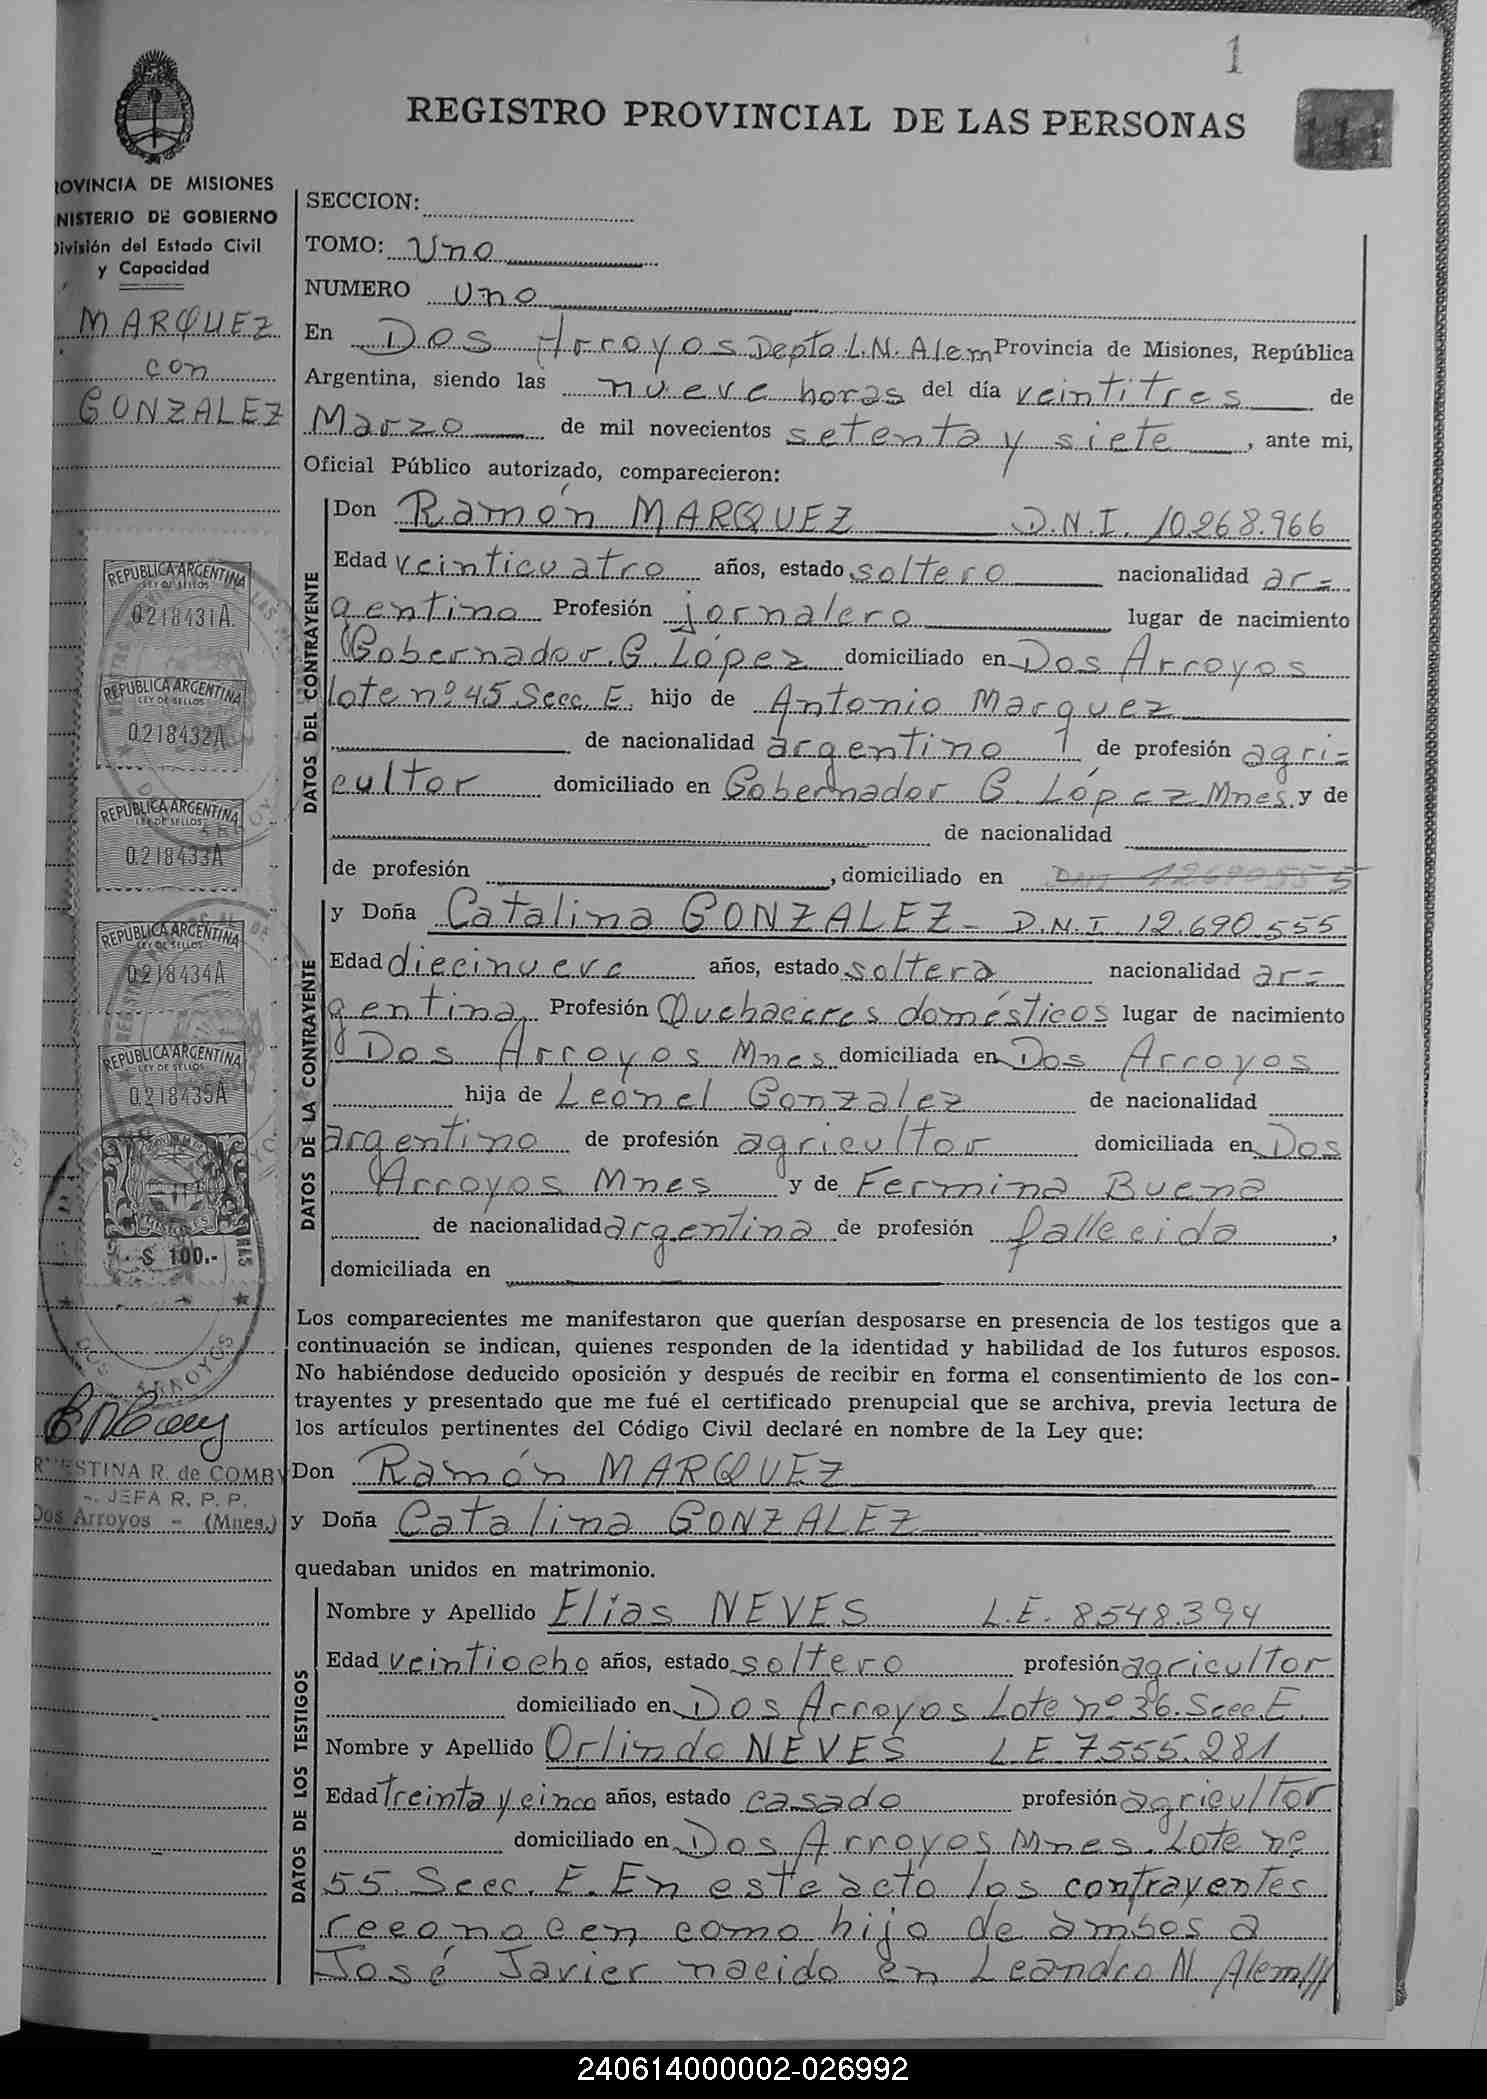 1
REGISTRO PROVINCIAL DE LAS PERSONAS
111
ROVINCIA DE MISIONES
NISTERIO DE GOBIERNO
División del Estado Civil
y Capacidad
MARQUEZ
con
GONZALEZ
REPUBLICA ARGENTINA
LEY DE SELLOS
0218431A
REPUBLICA ARGENTINA
LEY DE SELLOS
0218432A
REPUBLICA ARGENTINA
LEY DE SELLOS
0218433A
REPUBLICA ARGENTINA
LEY DE SELLOS
0218434A
REPUBLICA ARGENTINA
LEY DE SELLOS
0218435A
MISIONES
$ 100.-
DOS ARROYOS
ESTINA R. de COMBY
JEFA R. P. P.
Dos Arroyos - (Mnes.)
SECCION:
TOMO: Uno
NUMERO uno
En Dos Arroyos Depto L.N. Alem Provincia de Misiones, República
Argentina, siendo las nueve horas del día veintitres de
Marzo de mil novecientos setenta y siete, ante mi,
Oficial Público autorizado, comparecieron:
DATOS DEL CONTRAYENTE
Don Ramón MARQUEZ D.N.I. 10.268.966
Edad veinticuatro años, estado soltero nacionalidad ar=
gentino Profesión jornalero lugar de nacimiento
Gobernador G. López domiciliado en Dos Arroyos
lote nº 45 Secc. E. hijo de Antonio Marquez
de nacionalidad argentino de profesión agri=
cultor domiciliado en Gobernador G. López Mnes. y de
de nacionalidad
de profesión , domiciliado en DNI 12690555
DATOS DE LA CONTRAYENTE
y Doña Catalina GONZALEZ - D.N.I. 12.690.555
Edad diecinueve años, estado soltera nacionalidad ar=
gentina Profesión Quehaceres domésticos lugar de nacimiento
Dos Arroyos Mnes domiciliada en Dos Arroyos
hija de Leonel Gonzalez de nacionalidad
argentino de profesión agricultor domiciliada en Dos
Arroyos Mnes y de Fermina Buena
de nacionalidad argentina de profesión fallecida,
domiciliada en
Los comparecientes me manifestaron que querían desposarse en presencia de los testigos que a
continuación se indican, quienes responden de la identidad y habilidad de los futuros esposos.
No habiéndose deducido oposición y después de recibir en forma el consentimiento de los con-
trayentes y presentado que me fué el certificado prenupcial que se archiva, previa lectura de
los artículos pertinentes del Código Civil declaré en nombre de la Ley que:
Don Ramón MARQUEZ
y Doña Catalina GONZALEZ
quedaban unidos en matrimonio.
DATOS DE LOS TESTIGOS
Nombre y Apellido Elias NEVES L.E. 8548.394
Edad veintiocho años, estado soltero profesión agricultor
domiciliado en Dos Arroyos Lote nº 36. Secc. E.
Nombre y Apellido Orlindo NEVES L.E. 7.555.281
Edad treinta y cinco años, estado casado profesión agricultor
domiciliado en Dos Arroyos Mnes. Lote nº
55 Secc. E. En este acto los contrayentes
reconocen como hijo de ambos a
José Javier nacido en Leandro N. Alem///
240614000002-026992